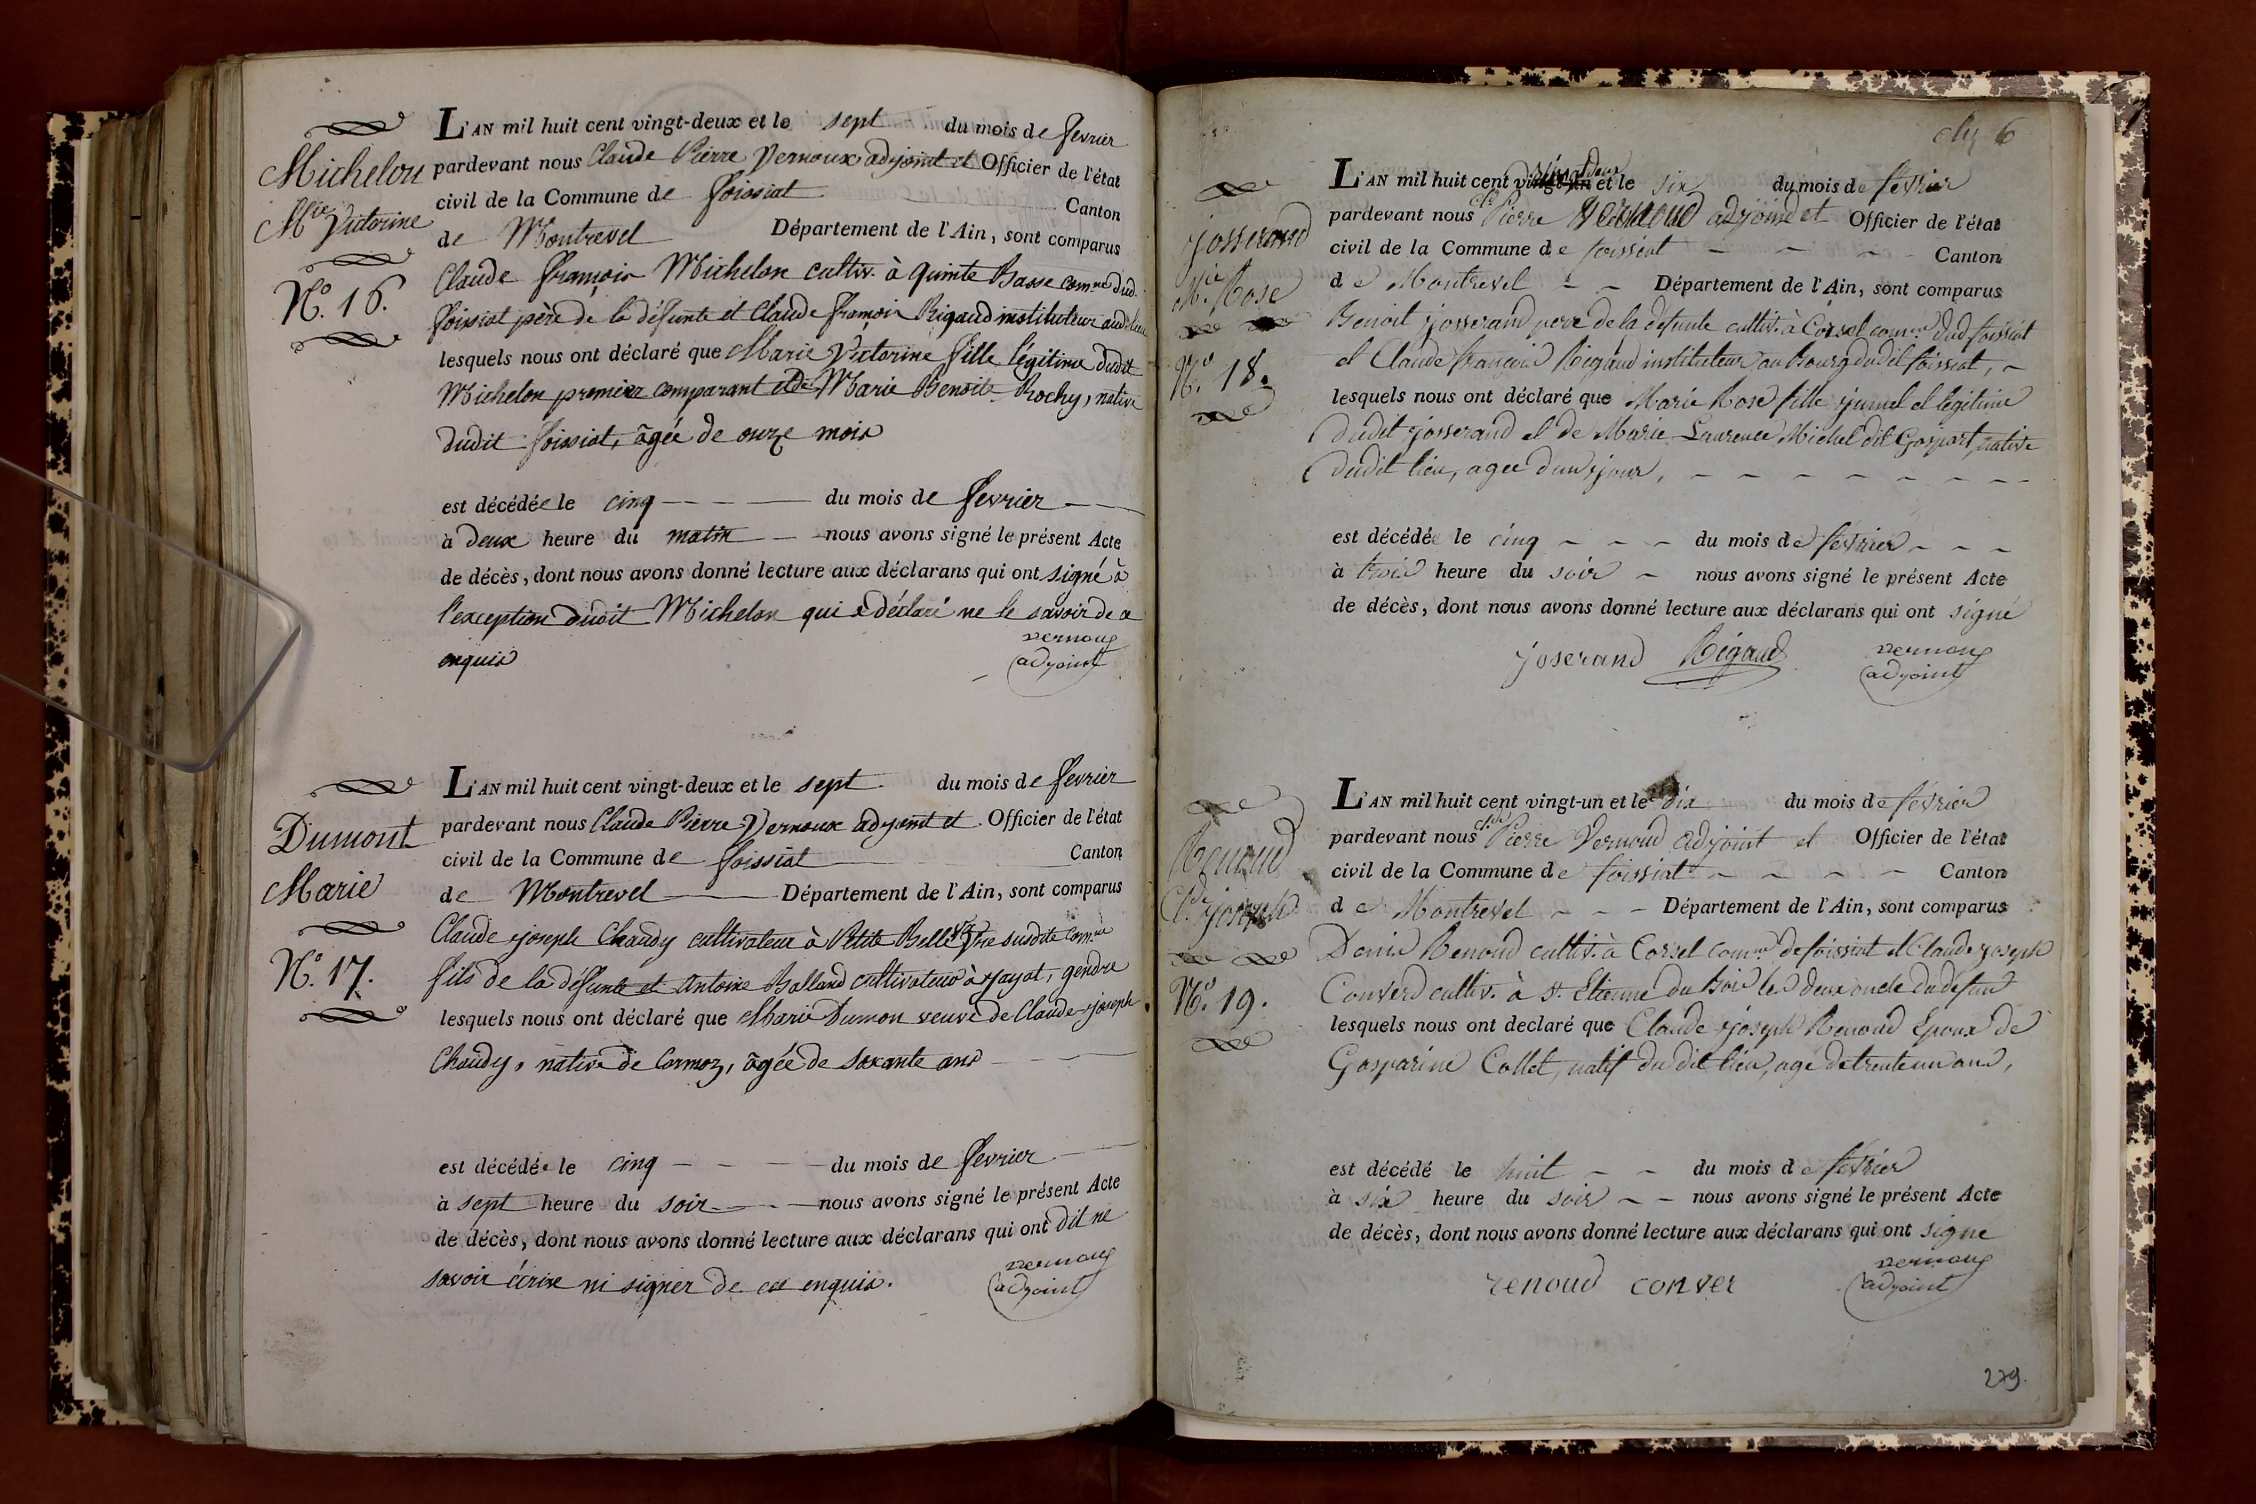 Michelon
Mie Victorine
N.o 16.
L'AN mil huit cent vingt-deux et le sept du mois de fevrier
pardevant nous Claude Pierre Vernoux adyoint et Officier de l'état
civil de la Commune de foissiat Canton
de Montrevel Département de l'Ain, sont comparus
Claude françois Michelon cultiv. à quinte Basse comne dud.
foissiat père de la défunte et Claude françois Rigaud instituteur audit lieu
lesquels nous ont déclaré que Marie Victorine fille légitime dudit
Michelon premier comparant et de Marie Benoite Rochy, native
dudit foissiat, âgée de onze mois
est décédée le cinq du mois de fevrier
à deux heure du matin nous avons signé le présent Acte
de décès, dont nous avons donné lecture aux déclarans qui ont signé à
l'exception dudit Michelon qui a déclaré ne le savoir de ce
enquis
vernoux
adyoint
Dumont
Marie
N.o 17.
L'AN mil huit cent vingt-deux et le sept du mois de fevrier
pardevant nous Claude Pierre Vernoux adyoint et Officier de l'état
civil de la Commune de foissiat Canton
de Montrevel Département de l'Ain, sont comparus
Claude joseph Chaudy cultivateur à Petite susdite comne
fils de la défunte et Antoine Balland cultivateur à jayat, gendre
lesquels nous ont déclaré que Marie Dumon veuve de Claude joseph
Chaudy, native de Cormoz, âgée de soxante ans
est décédée le cinq du mois de fevrier
à sept heure du soir nous avons signé le présent Acte
de décès, dont nous avons donné lecture aux déclarans qui ont dit ne
savoir écrire ni signer de ce enquis.
vernoux
adyoint
6
josserand
Mie Rose
N.o 18.
L'AN mil huit cent vingt-un vingt deux et le six du mois de fevrier
pardevant nous Cde Pierre Vernoud adjoind et Officier de l'état
civil de la Commune de foissiat Canton
de Montrevel Département de l'Ain, sont comparus
Benoit josserand pere de la defunte cultiv. à Corsel comne dud foissiat
et Claude françois Rigaud instituteur au Bourg dudit foissiat,
lesquels nous ont déclaré que Marie Rose fille jumel et légitime
dudit josserand et de Marie Laurence Michel dit Gaspart, native
dudit lieu, agée d'un jour,
est décédée le cinq du mois de fevrier
à trois heure du soir nous avons signé le présent Acte
de décès, dont nous avons donné lecture aux déclarans qui ont signé
joserand Rigaud
vernoux
adyoint
Renoud
Cde joseph
N.o 19.
L'AN mil huit cent vingt-un et le dix du mois de fevrier
pardevant nous Cde Pierre Vernoud adjoint et Officier de l'état
civil de la Commune de foissiat Canton
de Montrevel Département de l'Ain, sont comparus
Denis Renoud cultiv. à Corsel comne de foissiat et Claude joseph
Converd cultiv. à St. Etienne du Bois les deux oncle du defunt
lesquels nous ont declaré que Claude joseph Renoud Epoux de
Gasparine Collet, natif du dit lieu, agé de trente un ans,
est décédé le huit du mois de fevrier
à six heure du soir nous avons signé le présent Acte
de décès, dont nous avons donné lecture aux déclarans qui ont signe
renoud conver
vernoux
adyoint
279.